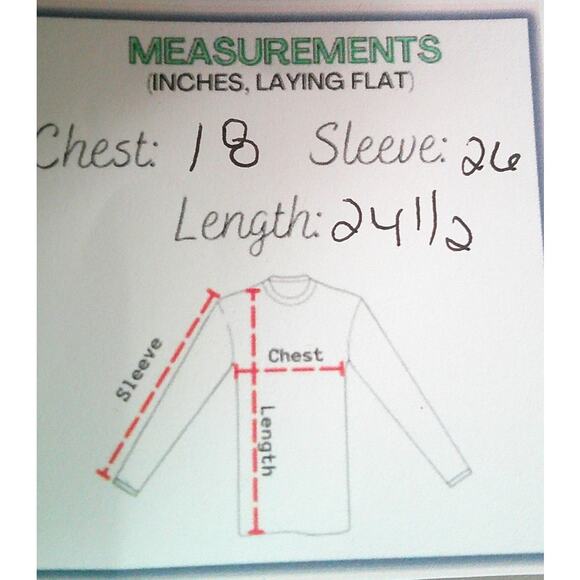 MEASUREMENTS
(INCHES, LAYING FLAT)
Chest: 18 Sleeve: 26
Length: 24 1/2
Sleeve
Chest
Length